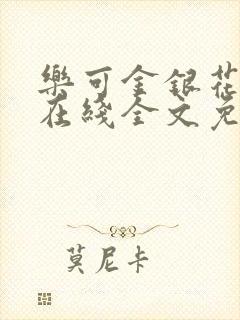 樂可金銀花
在綫全文免
莫尼卡